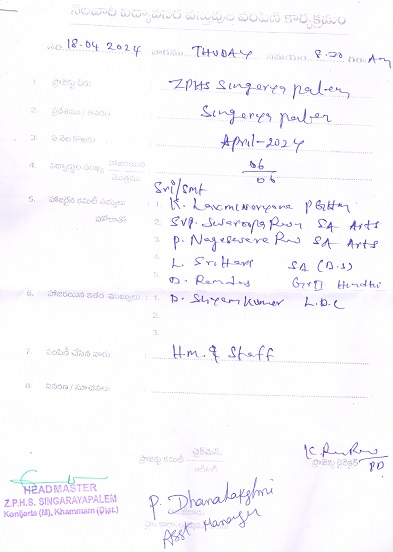 నెలవారీ విద్యావసర వస్తువుల పంపిణీ కార్యక్రమం
18.04 2024 వారము THUDAY సమయం 8.30 Am
1. ప్రాజెక్టు పేరు ZPHS Singaryapalem
2. Singaryapalem
3. ఏ నెల కొరకు April-2024
4. విద్యార్థుల సంఖ్య హాజరయిన 06
మొత్తము 06
Sri/Smt
5. హాజరైన కమిటీ సభ్యులు 1. K. Laxminarayana PGHM
హోదాతో 2. SVP. Swaroopa Rani SA Arts
3. P. Nageswara Rao SA Arts
4. L. Srihari SA (B.S)
5. D. Ramdas Hindhi
6. హాజరయిన ఇతర ముఖ్యులు : 1. D. Shyam Kumar L.D.C
2.
3.
7. పంపిణీ చేసిన వారు : H.M. & Staff
8. వివరణ / సూచనలు :
ప్రాజెక్టు కమిటీ ఛైర్మెన్
ప్రాజెక్టు డైరెక్టర్
PD
HEAD MASTER
Z.P.H.S. SINGARAYAPALEM
Konijarla (M), Khammam (Dist.)
P. Dhanalakshmi
Asst Manager